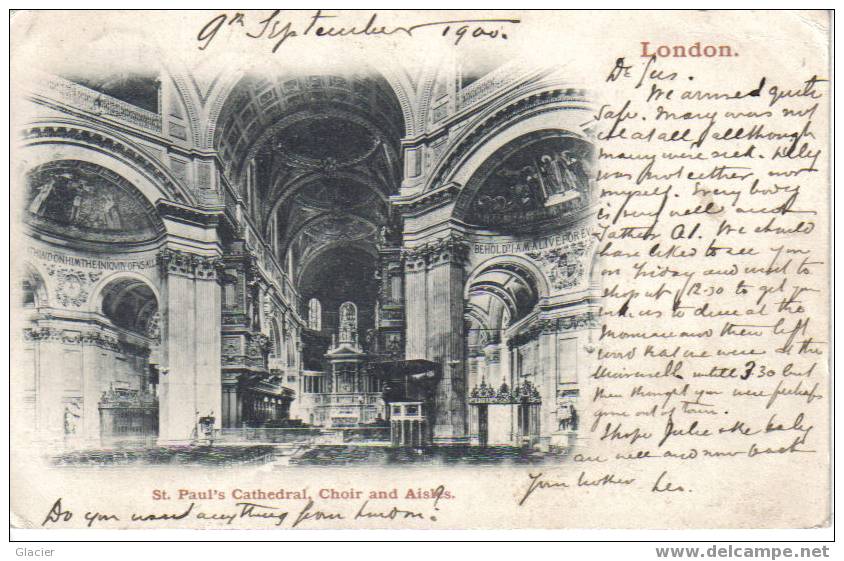 9th September 1900.
London.
We arrived quite
safe. Mary was not
ill at all, allthough
many were sick.
was not either nor
myself. Every body
is very well and
father A1. We should
have liked to see you
on Friday and went to
shop at 12-30 to get you
to dine at the
and then left
word that we were at the
until 3-30 but
then thought you were perhaps
gone out of town.
I hope Julie & the baby
are well and now back
Your brother Leo.
HIM THE INIQUITY OF US ALL
BEHOLD I AM ALIVE FOR EV
St. Paul's Cathedral, Choir and Aisles.
Do you want anything from London?
Glacier
www.delcampe.net